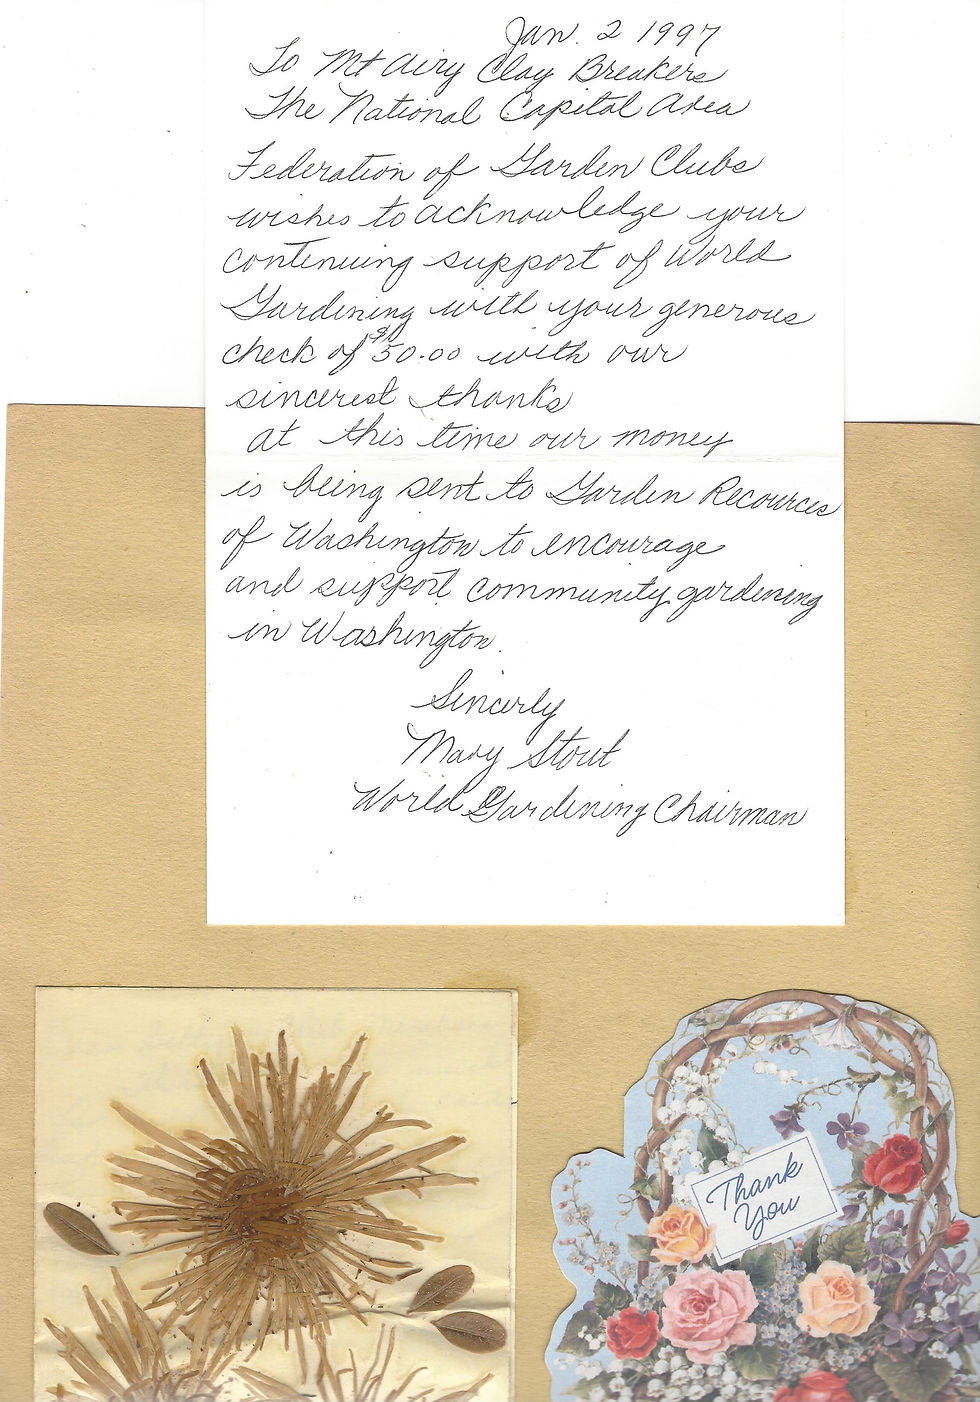 Jan. 2 1997
To Mt Airy Clay Breakers
The National Capital Area
Federation of Garden Clubs
wishes to acknowledge your
continuing support of World
Gardening with your generous
check of $50.00 with our
sincerest thanks
at this time our money
is being sent to Garden Recources
of Washington to encourage
and support community gardening
in Washington.
Sincerly
Mary Stout
World Gardening Chairman
Thank
You